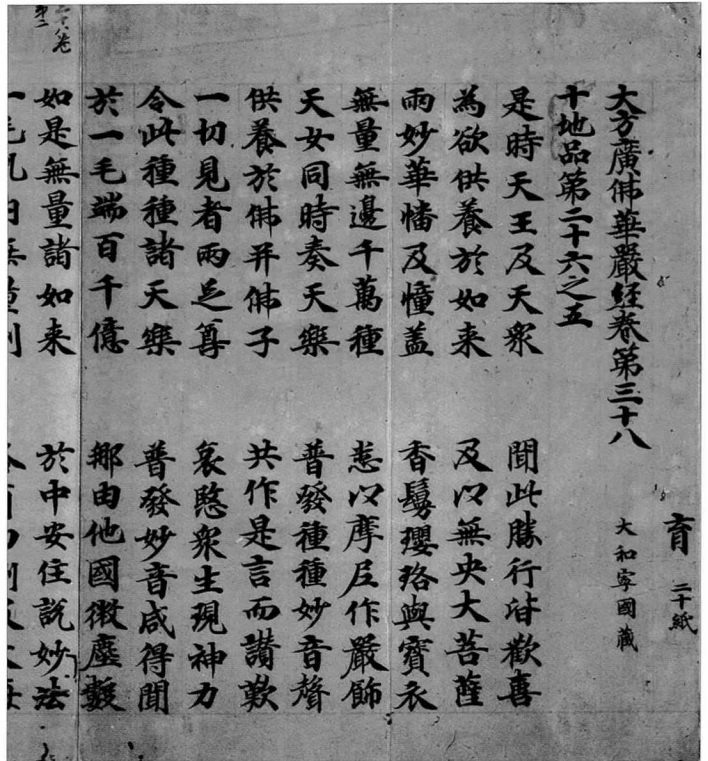 大方廣佛華嚴經卷第三十八 育 二十紙
大和寧國藏
十地品第二十六之五
是時天王及天衆 聞此勝行皆歡喜
為欲供養於如来 及以無央大菩薩
雨妙華幡及幢盖 香鬘瓔珞與寶衣
無量無邊千萬種 悉以摩尼作嚴飾
天女同時奏天樂 普發種種妙音聲
供養於佛并佛子 共作是言而讃歎
一切見者兩足尊 哀愍衆生現神力
令此種種諸天樂 普發妙音咸得聞
於一毛端百千億 那由他國微塵數
如是無量諸如来 於中安住說妙法
一毛孔内無量刹